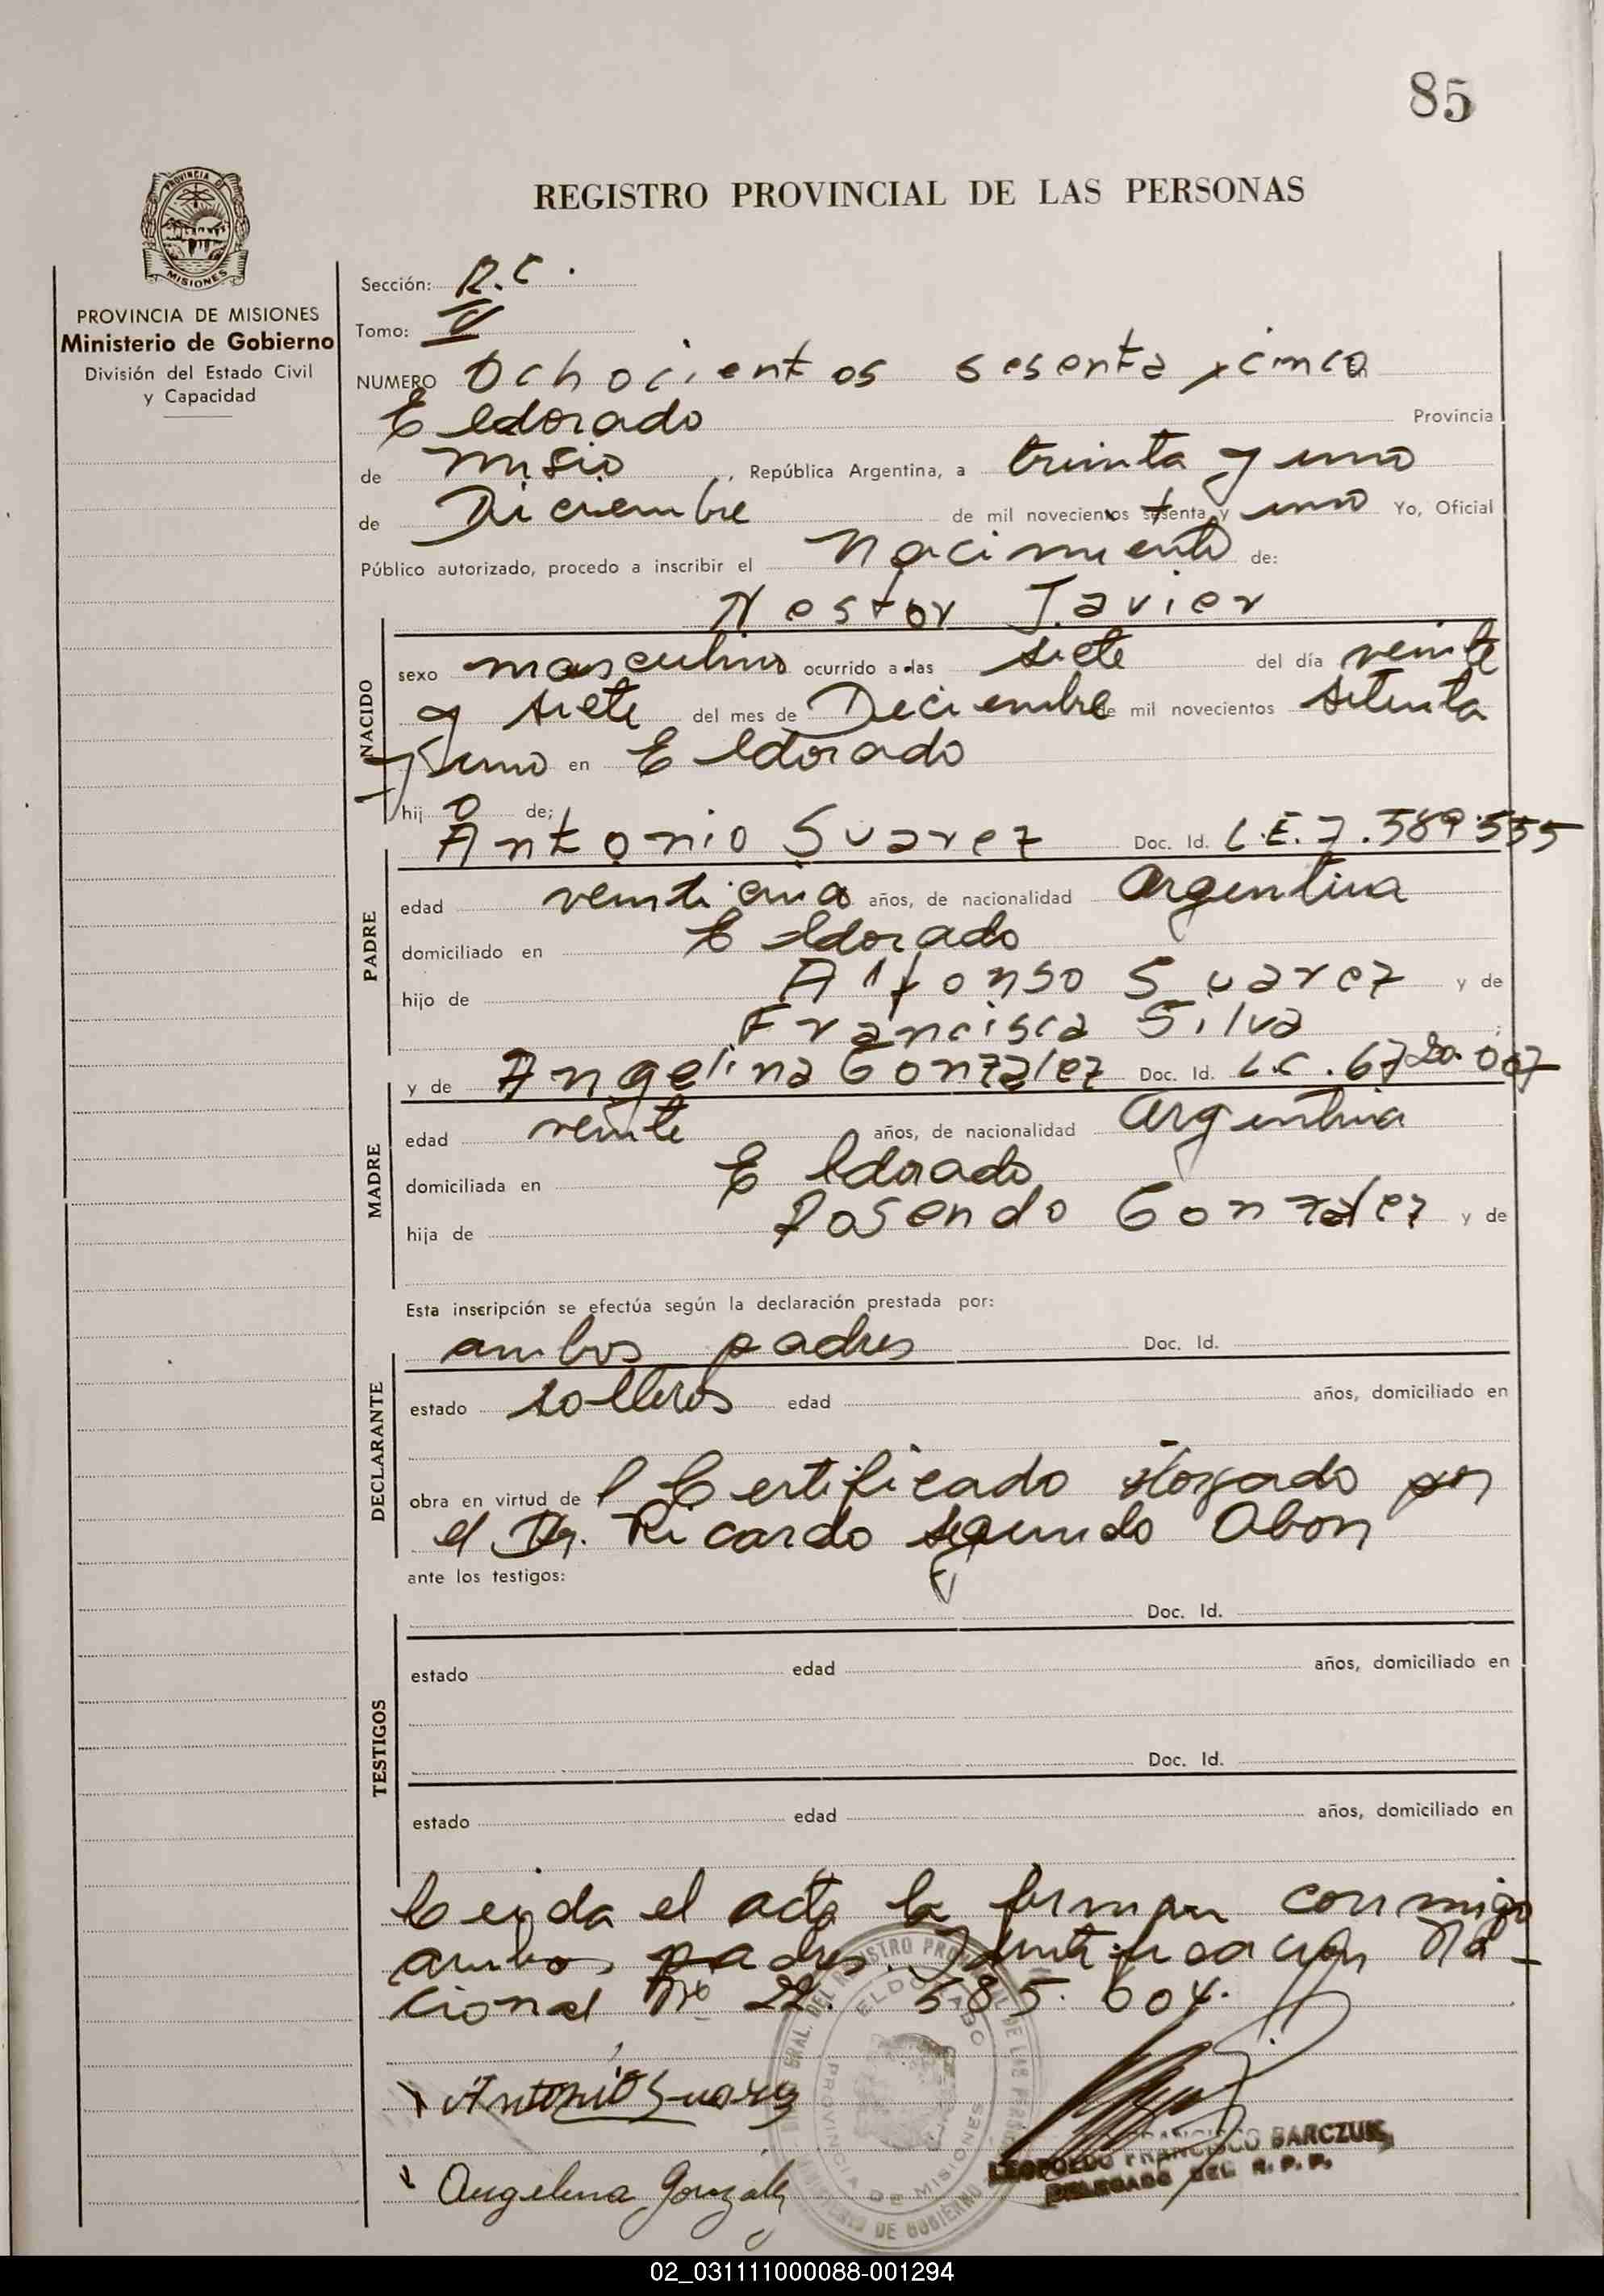 85
REGISTRO PROVINCIAL DE LAS PERSONAS
PROVINCIA DE MISIONES
Ministerio de Gobierno
División del Estado Civil
y Capacidad
Sección: R.C.
Tomo: V
NUMERO Ochocientos sesenta y cinco
Eldorado Provincia
de Misio, República Argentina, a treinta y uno
de Diciembre de mil novecientos setenta y uno Yo, Oficial
Público autorizado, procedo a inscribir el Nacimiento de:
Nestor Javier
NACIDO
sexo masculino ocurrido a las siete del día veinte
y siete del mes de Deciembre de mil novecientos setenta
y uno en Eldorado
hijo de;
PADRE
Antonio Suarez Doc. Id. L.E. 7.589.555
edad años, de nacionalidad Argentina
domiciliado en Eldorado
hijo de Alfonso Suarez y de
Francisca Silva
MADRE
y de Angelina Gonzalez Doc. Id. L.C.
edad veinte años, de nacionalidad Argentina
domiciliada en Eldorado
hija de Rosendo Gonzalez y de
Esta inscripción se efectúa según la declaración prestada por:
DECLARANTE
ambos padres Doc. Id.
estado solteros edad años, domiciliado en
obra en virtud del Certificado otorgado por
el Dr. Ricardo segundo Obon
ante los testigos:
TESTIGOS
Doc. Id.
estado edad años, domiciliado en
Doc. Id.
estado edad años, domiciliado en
Leida el acta la firman conmigo
ambos padres. Identificacion Na-
cional Nº 22. 585. 604.
Antonio Suarez
Angelina Gonzalez
DEL REGISTRO PROVINCIAL DE LAS PERSONAS
ELDORADO
PROVINCIA DE MISIONES
LEOPOLDO FRANCISCO BARCZUK
DELEGADO DEL R. P. P.
02_031111000088-001294